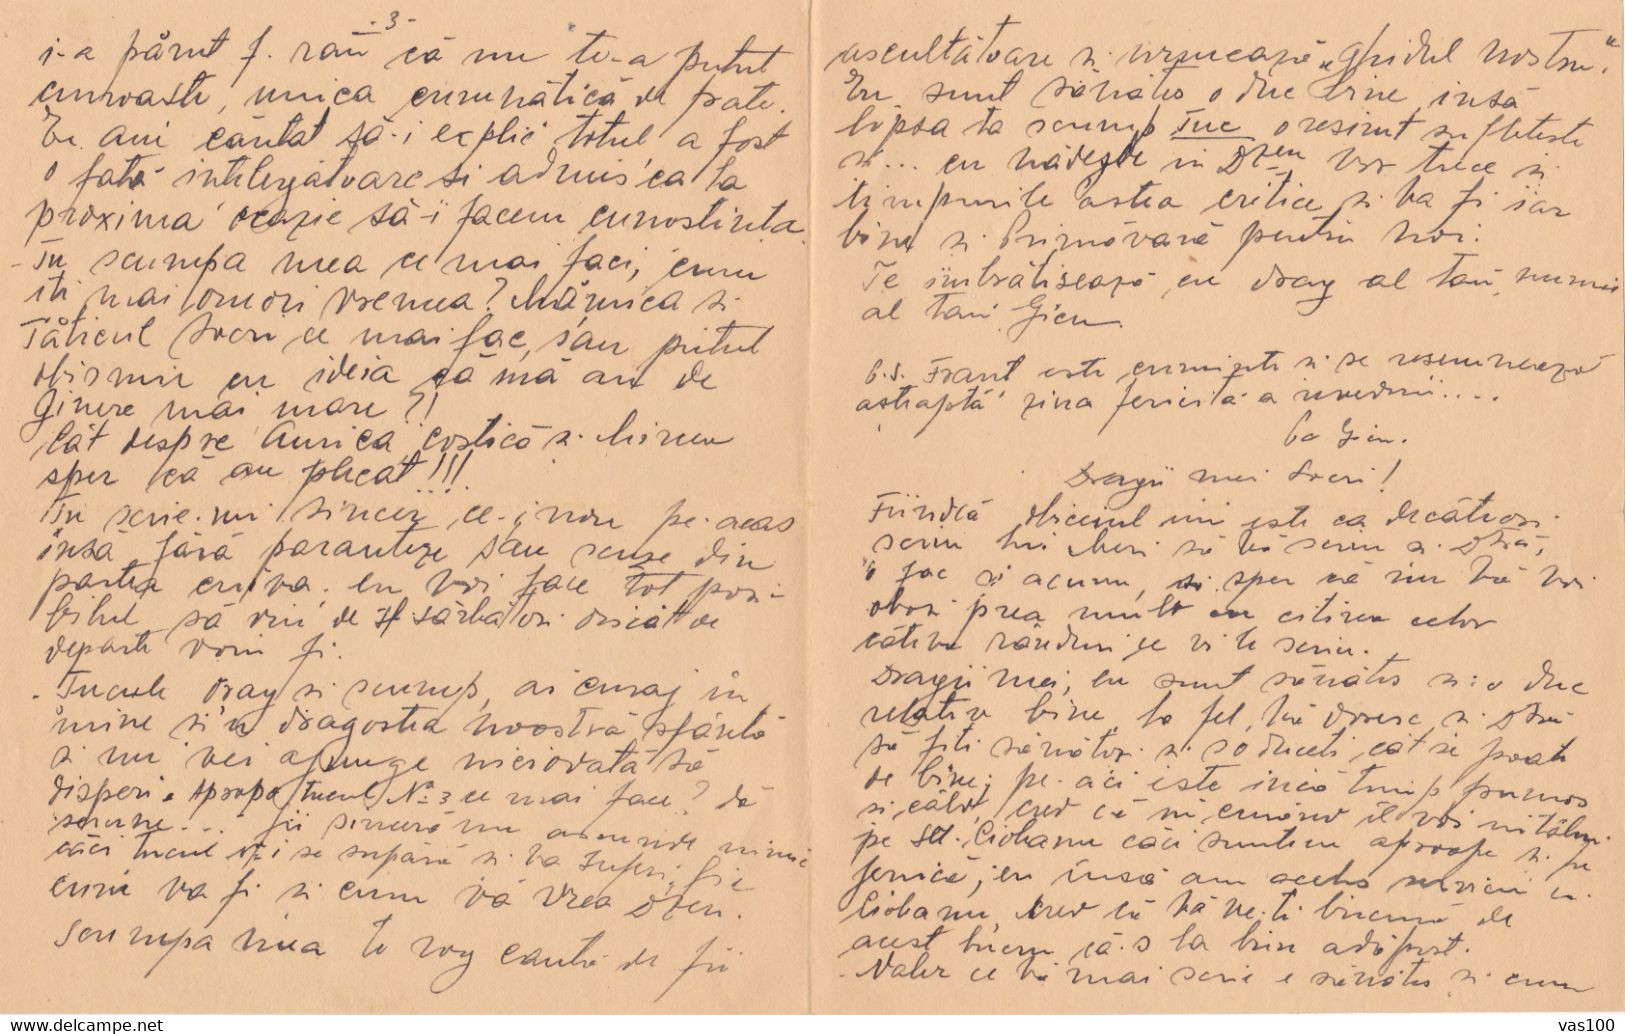 -3-
i-a părut f. rău că nu te-a putut
cunoaste, unica cumnătică de frate.
Eu am căutat să-i explic totul a fost
o fată intelegatoare si admis ca la
proxima ocazie să-i facem cunostinta.
- Tu scumpa mea ce mai faci, cum
iti mai omori vremea? Mămica si
Tăticul Socri ce mai fac, s'au putut
obisnui cu ideia că mă au de
Ginere mai mare?!
Cât despre Aurica, Costică si Mircea
sper că au plecat!!!
Tu scrie-mi sincer ce-i nou pe-acas
însă fără paranteze sau scuze din
partea cuiva, eu voi face tot posi-
bilul să vin de Sf. sărbători oricât de
departe voiu fi.
- Tucule drag si scump, ai curaj în
mine si'n dragostea noastră sfântă
si nu vei ajunge niciodată să
disperi. Apropo tucul No 3 ce mai face? dă
semne... fii sinceră nu ascunde nimic
căci tucul No 1 se supără si va suferi, fie
cum va fi si cum vă vrea Dzeu.
Scumpa mea te rog caută de fii
ascultătoare si urmează „Ghidul nostru."
Eu sunt sănătos o duc bine, însă
lipsa ta scump Tuc o resimt sufleteste
si... cu nădejde in Dzeu vor trece si
timpurile astea critice si va fi iar
bine si Primăvară pentru noi.
Te îmbrătisează cu drag al tău, numai
al tau Gicu.
P.S. Frant este cuminte si se resemnează
asteaptă ziua fericită a revederii....
Gicu.
Dragii mei Socri!
Fiindcă obiceiul imi este ca decâteori
scriu lui Meri să vă scriu si Dtră,
o fac si acum, si sper că nu vă voi
obosi prea mult cu citirea celor
câteva rânduri ce vi le scriu.
Dragii mei, eu sunt sănătos si o duc
relativ bine, la fel vă doresc si Dtră
să fiti sănătosi si s'o duceti cât se poate
de bine; pe aci este incă timp frumos
si căld, cred că in curând il voi intâlni
pe Slt. Ciobanu căci suntem aproape si pe
ferică, eu însă am acelas serviciu
Ciobanu, cred că vă ve-ti bucura de
acest lucru că-s la bun adăpost.
- Valer ce vă mai scrie e sănătos si cum
vas100